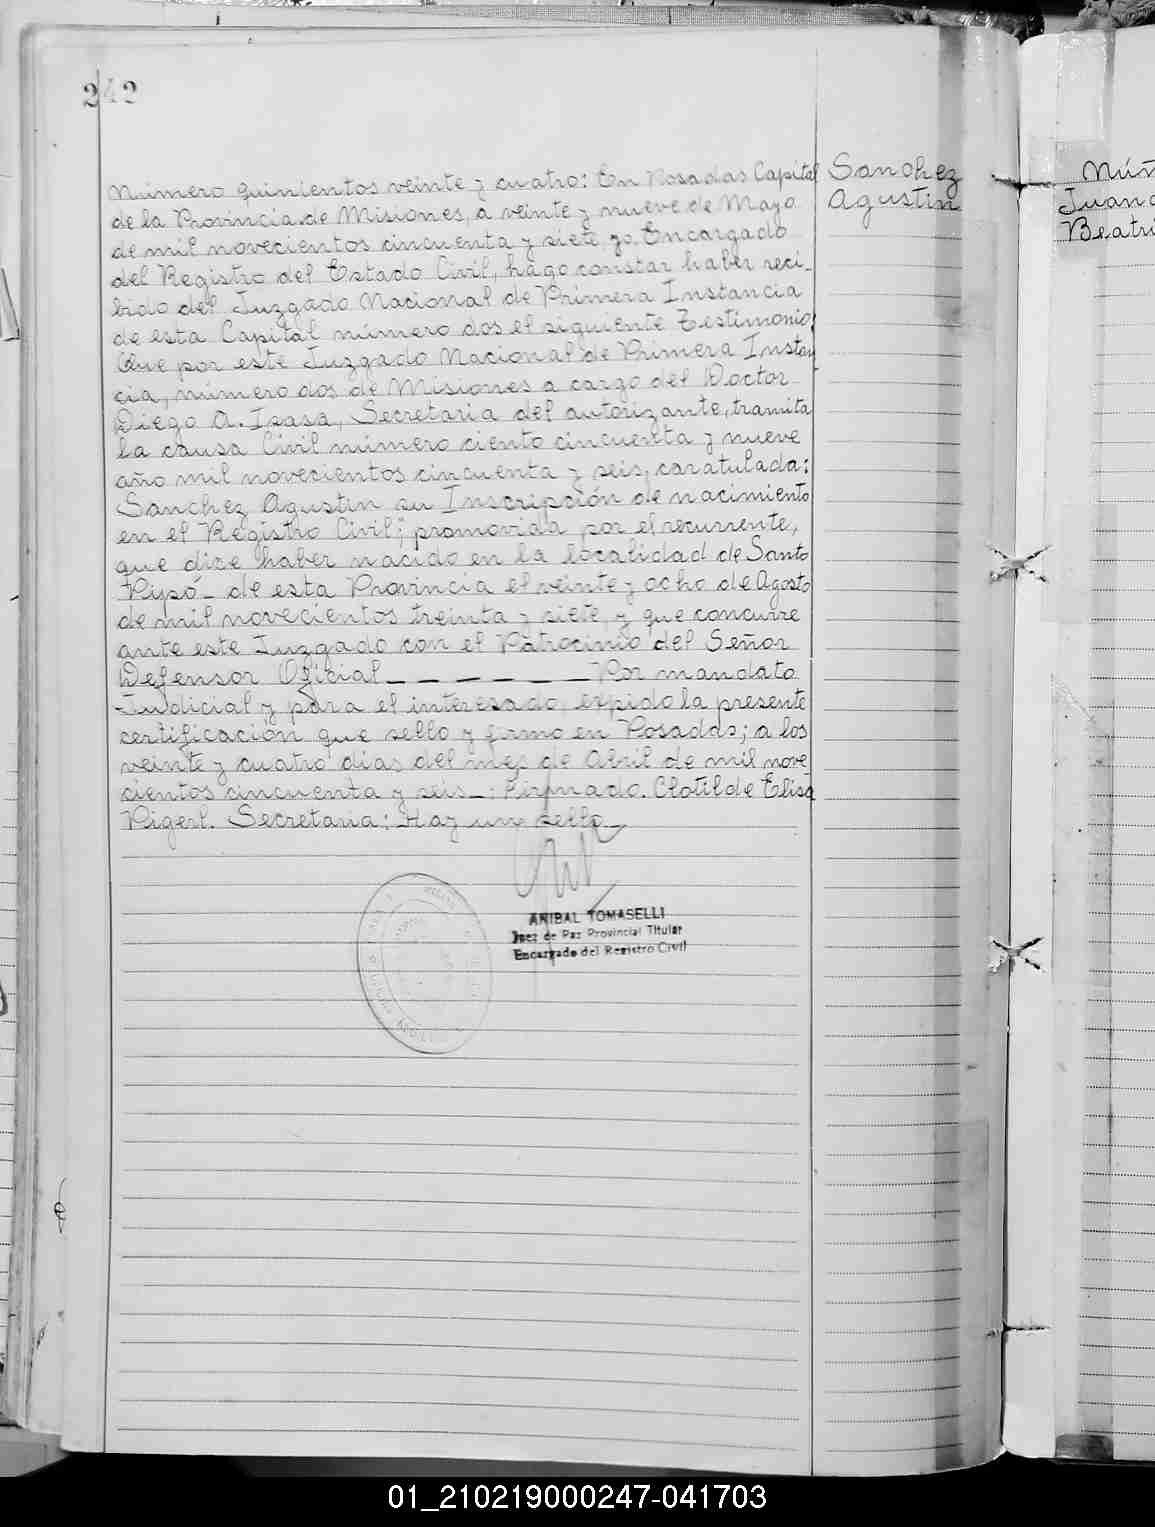 242
Sanchez
Agustin
Número quinientos veinte y cuatro: En Posadas Capital
de la Provincia de Misiones, a veinte y nueve de Mayo
de mil novecientos cincuenta y siete, yo Encargado
del Registro del Estado Civil, hago constar haber reci-
bido del Juzgado Nacional de Primera Instancia
de esta Capital número dos el siguiente Testimonio:
Que por este Juzgado Nacional de Primera Instan
cia, número dos de Misiones a cargo del Doctor
Diego A. Isasa, Secretaria del autorizante, tramita
la causa Civil número ciento cincuenta y nueve
año mil novecientos cincuenta y seis, caratulada:
Sanchez Agustin su Inscripción de nacimiento
en el Registro Civil"; promovida por el recurrente,
que dice haber nacido en la localidad de Santo
Pipó- de esta Provincia el veinte y ocho de Agosto
de mil novecientos treinta y siete, y que concurre
ante este Juzgado con el Patrocinio del Señor
Defensor Oficial _ _ _ _ _ _ _ Por mandato
Judicial y para el interesado, expido la presente
certificación que sello y firmo en Posadas; a los
veinte y cuatro días del mes de Abril de mil nove
cientos cincuenta y seis-: Firmado. Clotilde Elisa
Pigerl. Secretaria: Hay un sello-
ANIBAL TOMASELLI
Juez de Paz Provincial Titular
Encargado del Registro Civil
Núñ
Juana
Beatri
01_210219000247-041703